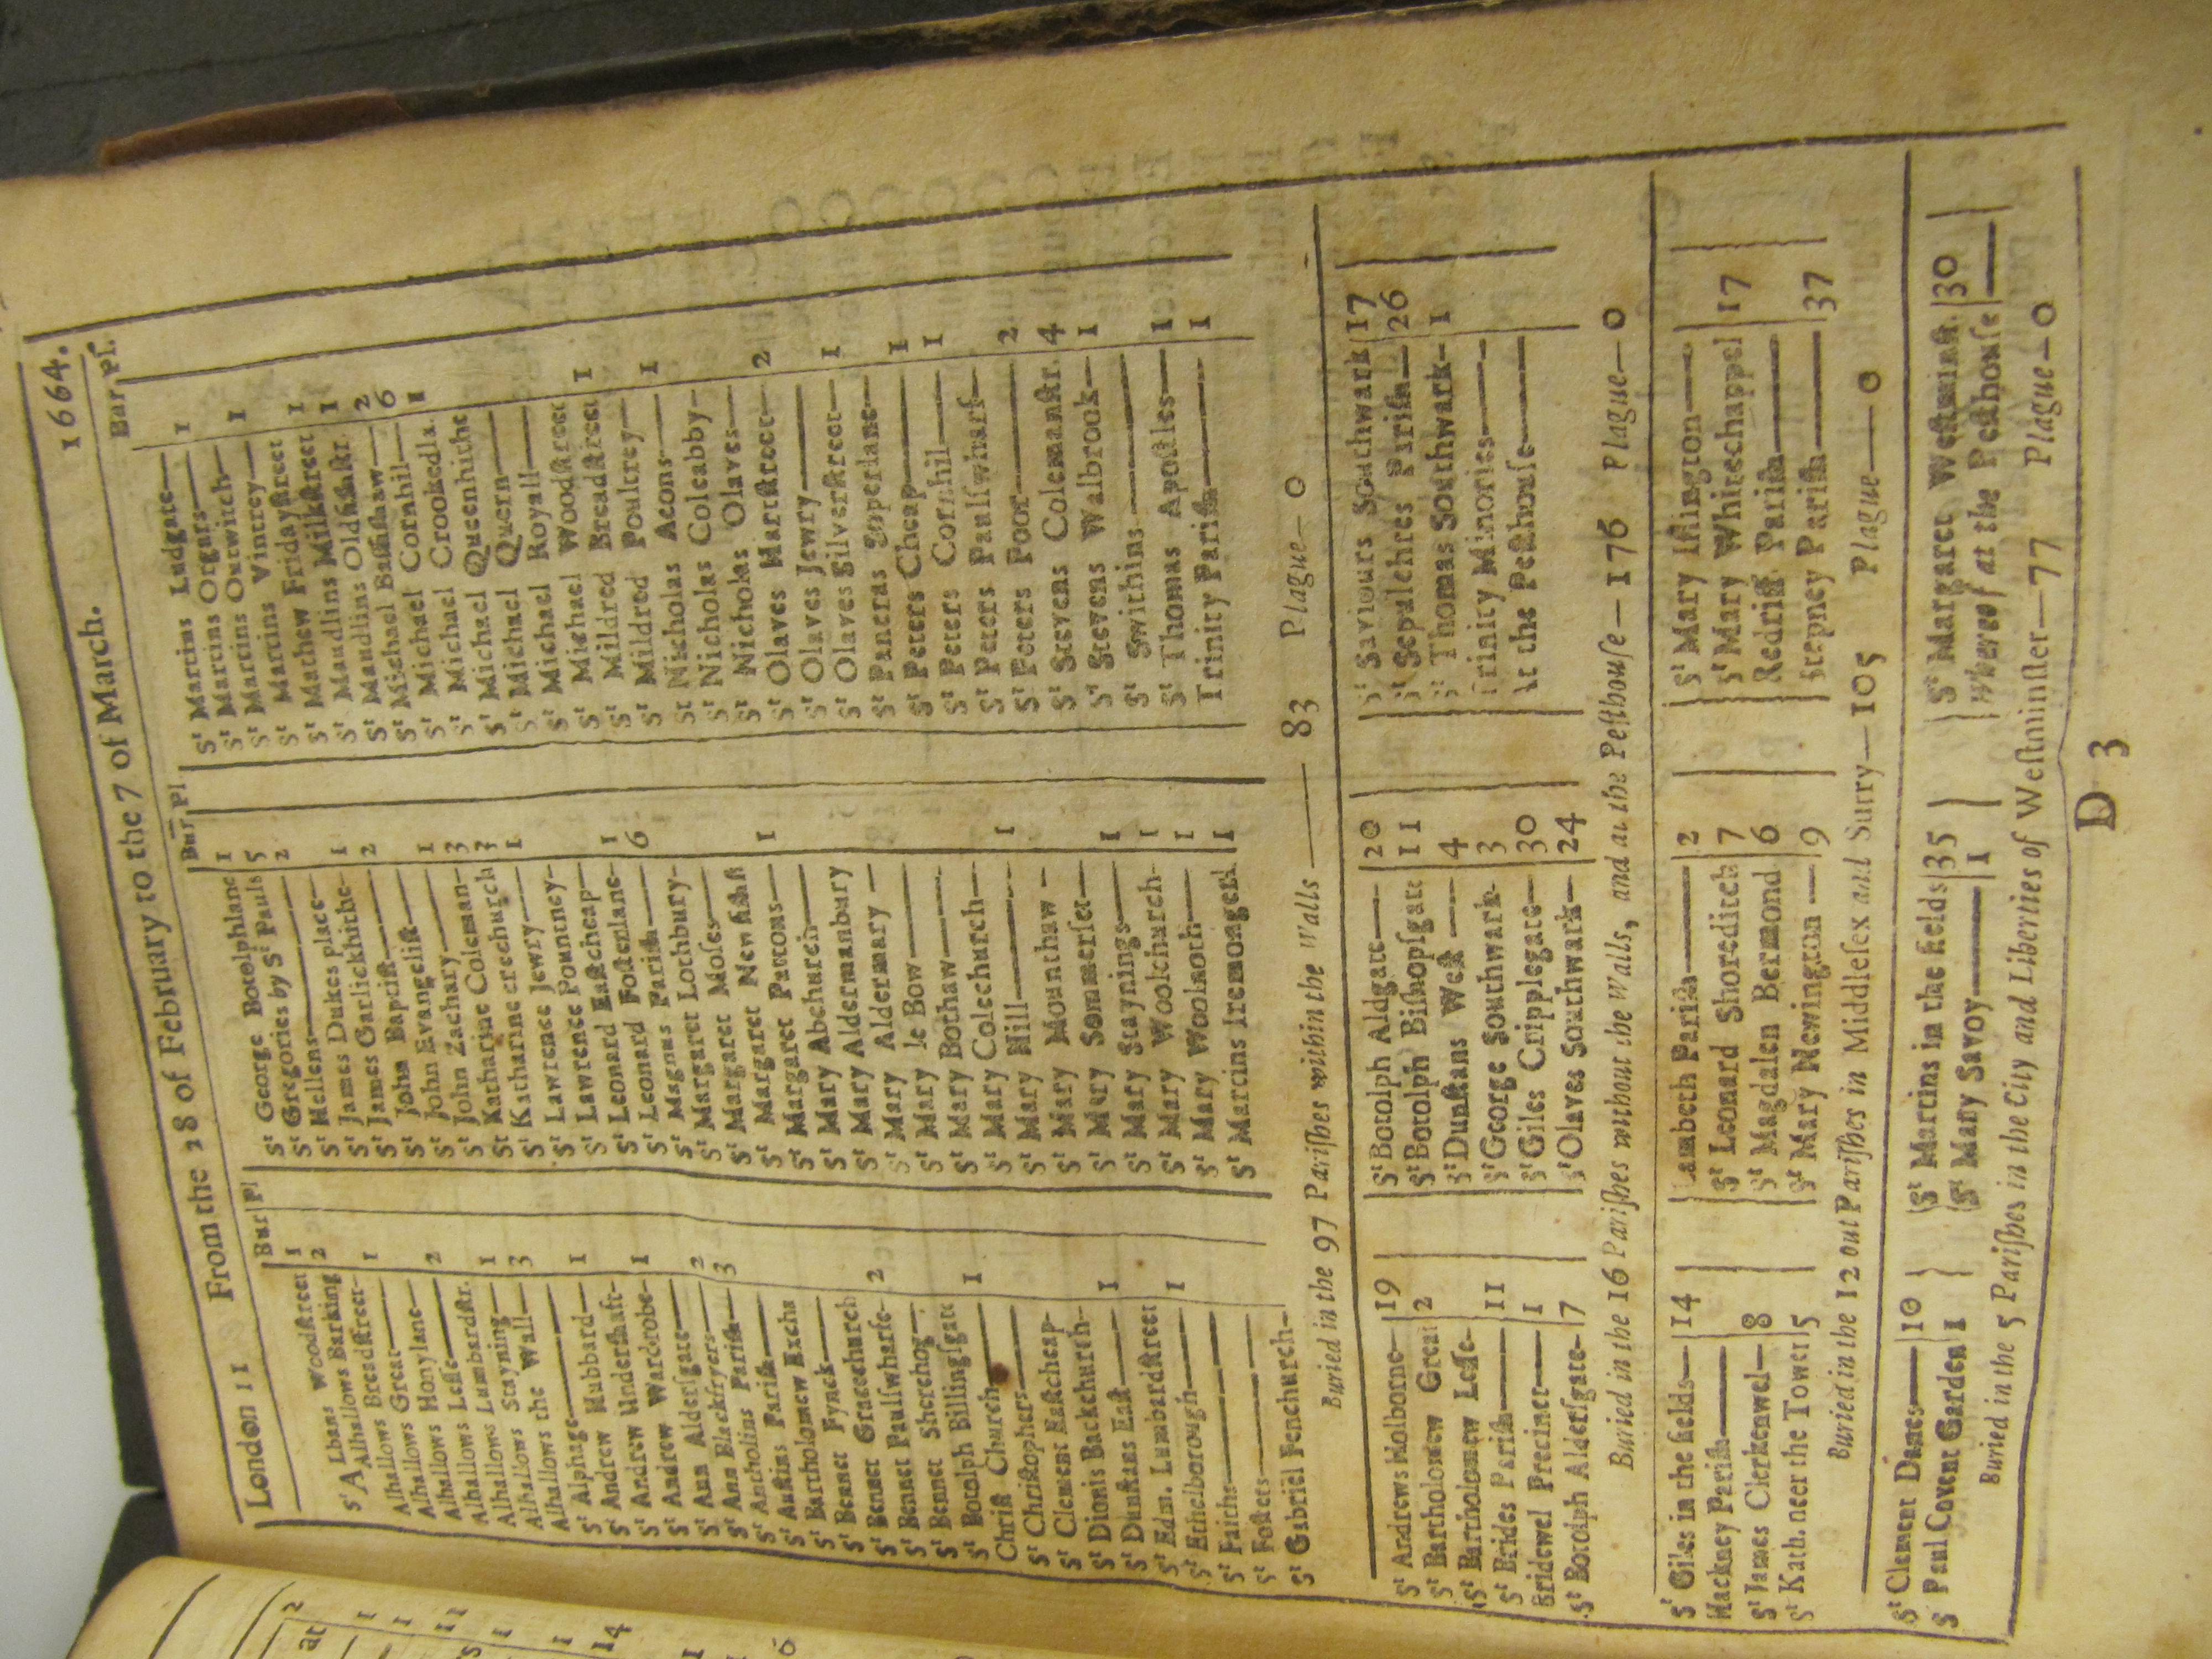 London 11 From the 28 of February to the 7 of March. 1664.
Bur Pl
St ALbans Woodstreet 1
Alhallows Barking 2
Alhallows Breadstreet-
Alhallows Great 1
Alhallows Honylane
Alhallows Lesse 2
Alhallows Lumbardstr.
Alhallows Stayning 1
Alhallows the Wall 3
St Alphage
St Andrew Hubbard 1
St Andrew Undershaft-
St Andrew Wardrobe- 1
St Ann Aldersgate 2
St Ann Blackfryers 3
St Antholins Parish
St Austins Parish
St Bartholomew Excha
St Bennet Fynck
St Bennet Gracechurch
St Bennet Paulswharfe- 2
St Bennet Sherehog
St Botolph Billingsgate
Christ Church 1
St Christophers
St Clement Eastcheap-
St Dionis Backchurch-
St Dunstans East 1
St Edm. Lumbardstreet
St Ethelborough 1
St Faiths
St Fosters
St Gabriel Fenchurch-
Bur Pl
St George Botolphlane 1
St Gregories by St Pauls 5
St Hellens 2
St James Dukes place
St James Garlickhithe- 1
St John Baptist 2
St John Evangelist
St John Zachary 1
St Katharine Coleman- 3
St Katharine creechurch 3
St Lawrence Jewry 1
St Lawrence Pountney-
St Leonard Eastcheap
St Leonard Fosterlane- 1
St Magnus Parish 6
St Margaret Lothbury-
St Margaret Moses
St Margaret Newfishst
St Margaret Pattons 1
St Mary Abchurch
St Mary Aldermanbury
St Mary Aldermary
St Mary le Bow
St Mary Bothaw
St Mary Colechurch
St Mary Hill 1
St Mary Mounthaw
St Mary Sommerset
St Mary Staynings 1
St Mary Woolchurch- 1
St Mary Woolnoth 1
St Martins Iremongerl. 1
Bur Pl.
St Martins Ludgate
St Martins Orgars 1
St Martins Outwitch
St Martins Vintrey 1
St Mathew Fridaystreet
St Maudlins Milkstreet 1
St Maudlins Oldfishstr. 1
St Michael Bassishaw 2
St Michael Cornhil 6
St Michael Crookedla. 1
St Michael Queenhithe
St Michael Quern
St Michael Royall
St Michael Woodstreet
St Mildred Breadstreet 1
St Mildred Poultrey
St Nicholas Acons 1
St Nicholas Coleabby
St Nicholas Olaves
St Olaves Hartstreet 2
St Olaves Jewry
St Olaves Silverstreet 1
St Pancras Soperlane
St Peters Cheap 1
St Peters Cornhil 1
St Peters Paulswharf
St Peters Poor 2
St Stevens Colemanstr. 4
St Stevens Walbrook 1
St Swithins
St Thomas Apostles 1
Trinity Parish 1
Buried in the 97 Parishes within the Walls 83 Plague 0
St Andrews Holborne 19
St Bartholomew Great 2
St Bartholomew Lesse-
St Brides Parish 11
Bridewel Precinct 1
St Botolph Aldersgate- 7
St Botolph Aldgate 20
St Botolph Bishopsgate 11
St Dunstans West 4
St George Southwark- 3
St Giles Cripplegate 30
St Olaves Southwark 24
St Saviours Southwark 17
St Sepulchres Parish 26
St Thomas Southwark- 1
Trinity Minories
At the Pesthouse
Buried in the 16 Parishes without the Walls, and at the Pesthouse-176 Plague-0
St Giles in the fields 14
Hackney Parish
St James Clerkenwel 8
St Kath. neer the Tower 5
Lambeth Parish 2
St Leonard Shoreditch 7
St Magdalen Bermond 6
St Mary Newington 9
St Mary Islington
St Mary Whitechappel 17
Redriff Parish
Stepney Parish 37
Buried in the 12 out Parishes in Middlesex and Surry-105 Plague-0
St Clement Danes 10
St Paul Covent Garden 1
St Martins in the fields 35
St Mary Savoy 1
St Margaret Westminst. 30
whereof at the Pesthouse
Buried in the 5 Parishes in the City and Liberties of Westminster-77 Plague-0
D 3